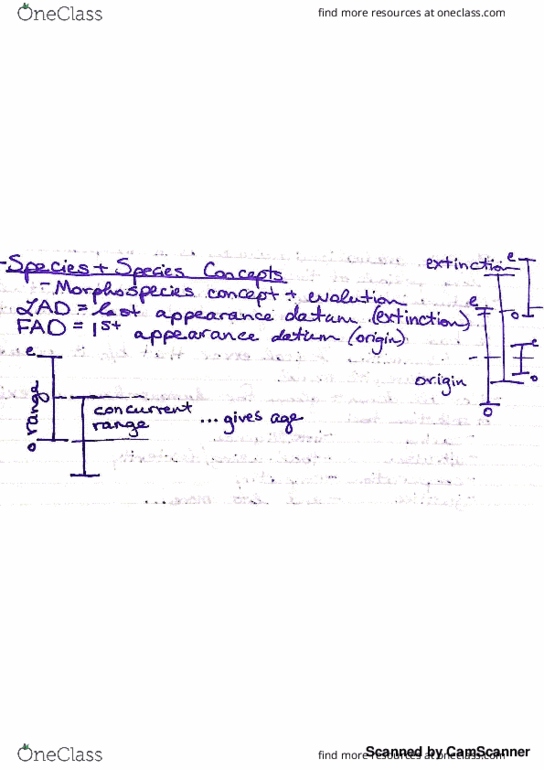 OneClass
find more resources at oneclass.com
- Species + Species Concepts
- Morphospecies concept + evolution
LAD = last appearance datum (extinction)
FAD = 1st appearance datum (origin)
e
o range
concurrent
range
... gives age
extinction
e
e
o
e
origin
o
o
OneClass
find more resources at oneclass.com
Scanned by CamScanner